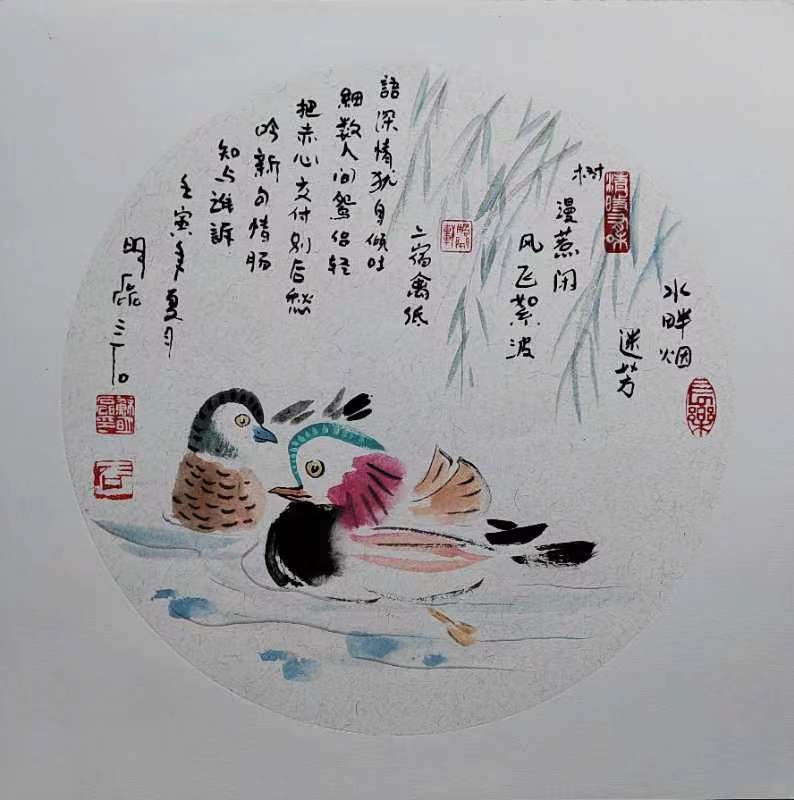 水畔烟
迷芳
树
清時有味
漫惹闲
风飞絮波
上宿禽低
語深情犹自倾吐
細数人间鸳侣轻
把赤心交付别后愁
吟新句情肠
知与誰訴
壬寅年夏月
明
長樂